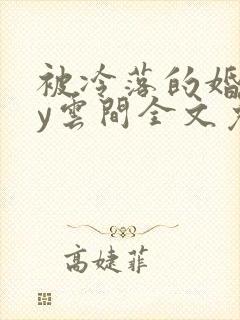 被冷落的婚
y雲間全文免
高婕菲